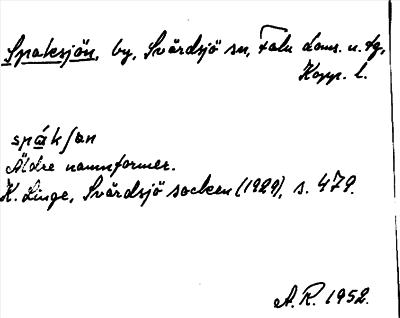 Spaksjön, by, Svärdsjö sn, Falu doms. u. tg,
Kopp. l.
spák∫ɑn
Äldre namnformer.
K. Linge, Svärdsjö socken (1929), s. 479.
A.R. 1952.